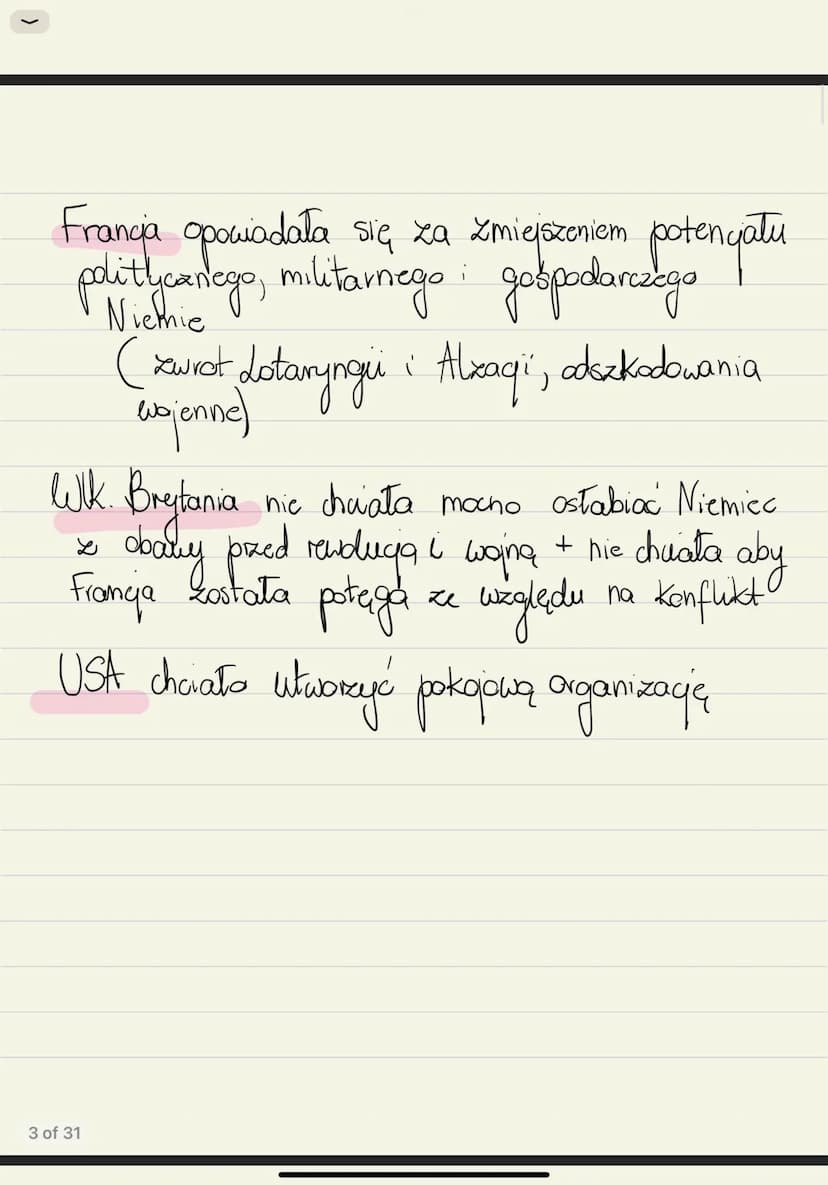 Francja opowiadała się za zmiejszeniem potencjału
politycznego, militarnego i gospodarczego
Niemie
(zwrot Lotaryngii i Alzacji, odszkodowania
wojenne)
Wlk. Brytania nie chciała mocno osłabiać Niemiec
z obawy przed rewolucją i wojną + nie chciała aby
Francja została potęgą ze względu na konflikt
USA chciało utworzyć pokojową organizację
3 of 31